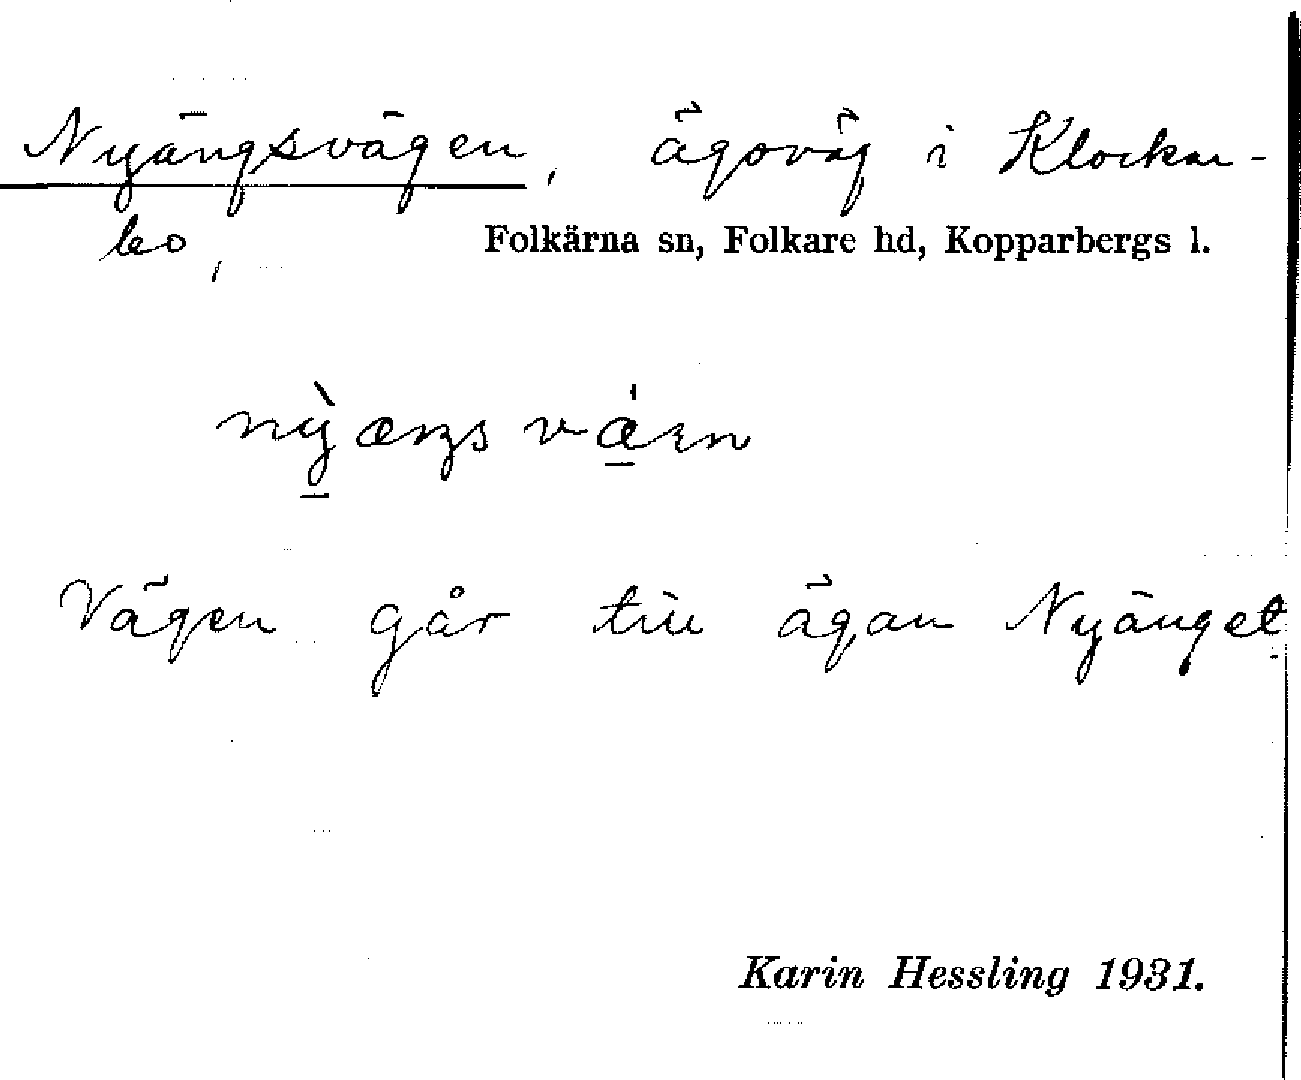 Nyängsvägen, ägoväg i Klockar-
bo,
Folkärna sn, Folkare hd, Kopparbergs l.
Vägen går till ägan Nyänget
Karin Hessling 1931.